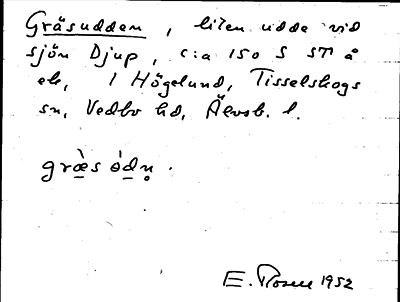 Gräsudden, liten udde vid
sjön Djup, c:a 150 S
ek, i Högelund, Tisselskogs
sn, Vedbo hd, Älvsb. l.
græ̀s ɵ̀dn̥.
E. Rosell 1952